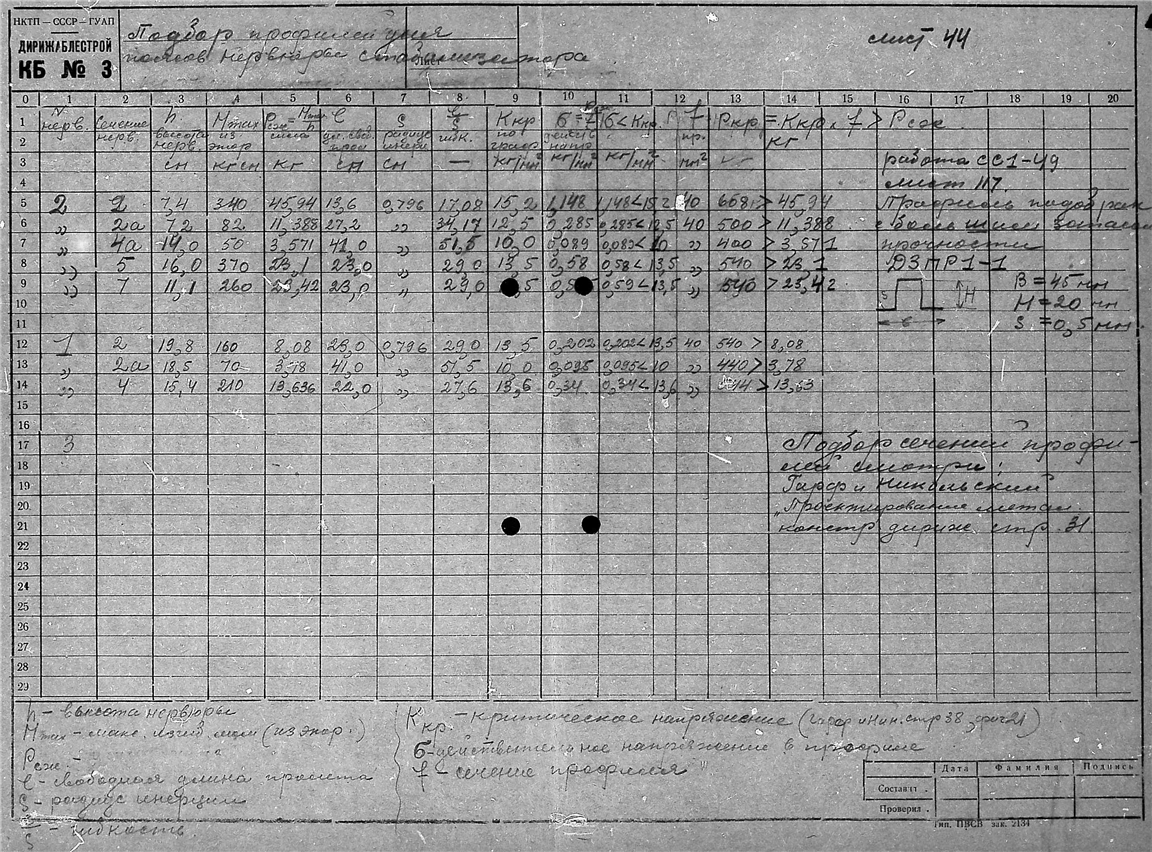 НКТП — СССР — ГУАП
ДИРИЖАБЛЕСТРОЙ
КБ № 3
Подбор профилей для
поясов нервюры стабилизатора
Лист
лист 44
0 1 2 3 4 5 6 7 8 9 10 11 12 13 14 15 16 17 18 19 20
1 N h Mmax Pсж = Mmax/h l S l/S Kкр σ = P/f σ < Kкр f Pкр = Kкр × f > Pсж
нерв. Сечение нерв. высота нерв. из эпюр сила дл. своб. радиус инерц. гибк. по график. действ. напр. пр. кг
2
3 см кгсм кг см см — кг/мм² кг/мм² кг/мм² мм² работа СС1-49
4 лист 117.
5 2 2 7,4 340 45,94 13,6 0,796 17,08 15,2 1,148 1,148<15,2 40 608 > 45,94 Профиль подобран
6 „ 2а 7,2 82 11,388 27,2 „ 34,17 12,5 0,285 0,285<12,5 40 500 > 11,388 с большим запасом
7 „ 4а 14,0 50 3,571 41,0 „ 51,5 10,0 0,089 0,089<10 „ 400 > 3,571 прочности
8 „ 5 16,0 370 23,1 23,0 „ 29,0 13,5 0,58 0,58<13,5 „ 540 > 23,1 ДЗПР1-1
9 „ 7 11,1 260 23,42 23,0 „ 29,0 ,5 0,5 0,59<13,5 „ 540 > 23,42 S H В = 45 мм
10 Н = 20 мм
11 в S = 0,5 мм.
12 1 2 19,8 160 8,08 23,0 0,796 29,0 13,5 0,202 0,202<13,5 40 540 > 8,08
13 „ 2а 18,5 70 3,78 41,0 „ 51,5 10,0 0,095 0,095<10 „ 440 > 3,78
14 „ 4 15,4 210 13,636 22,0 „ 27,6 13,6 0,34 0,34<13,6 „ 544 > 13,63
15
16
17 3 Подбор сечений профи-
18 лей смотри:
19 Гарф и Никольский
20 „Проектирование метал.
21 констр. дириж. стр. 31
22
23
24
25
26
27
28
29
h — высота нервюры
Mmax — макс. изгиб. мом (из эпюр.)
Pсж. —
l — свободная длина пролета
S — радиус инерции
l/S — гибкость
Kкр. — критическое напряжение (Гарф и Ник. стр 38, фиг 21)
σ — действительное напряжение в профиле
f — сечение профиля
Дата Фамилия Подпись
Составил .
Проверил .
Тип. ПВСВ зак. 2134